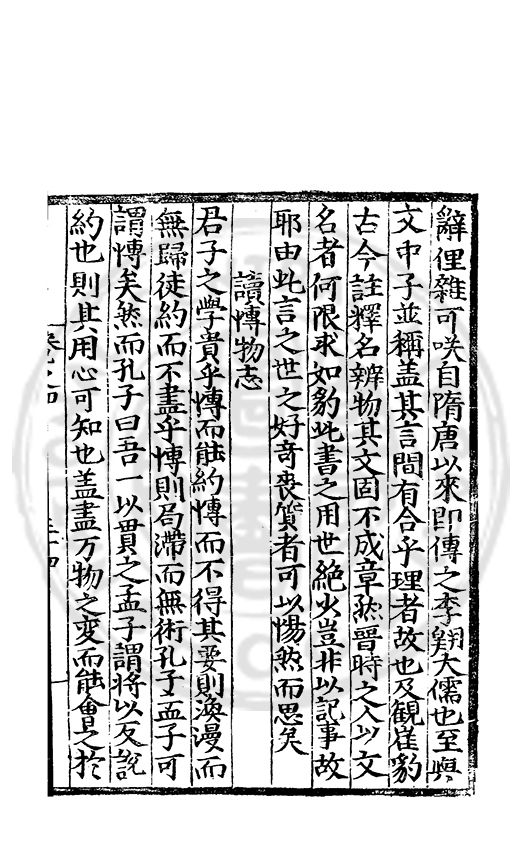 辭俚雜可咲自隋唐以來即傳之李翱大儒也至與
文中子並稱盖其言間有合乎理者故也及觀崔豹
古今註釋名辨物其文固不成章然晉時之人以文
名者何限求如豹此書之用世絶少豈非以記事故
耶由此言之世之好竒喪質者可以惕然而思矣
讀博物志
君子之學貴乎博而能約博而不得其要則渙漫而
無歸徒約而不盡乎博則局滯而無術孔子孟子可
謂博矣然而孔子曰吾一以貫之孟子謂將以反說
約也則其用心可知也盖盡万物之変而能會之於